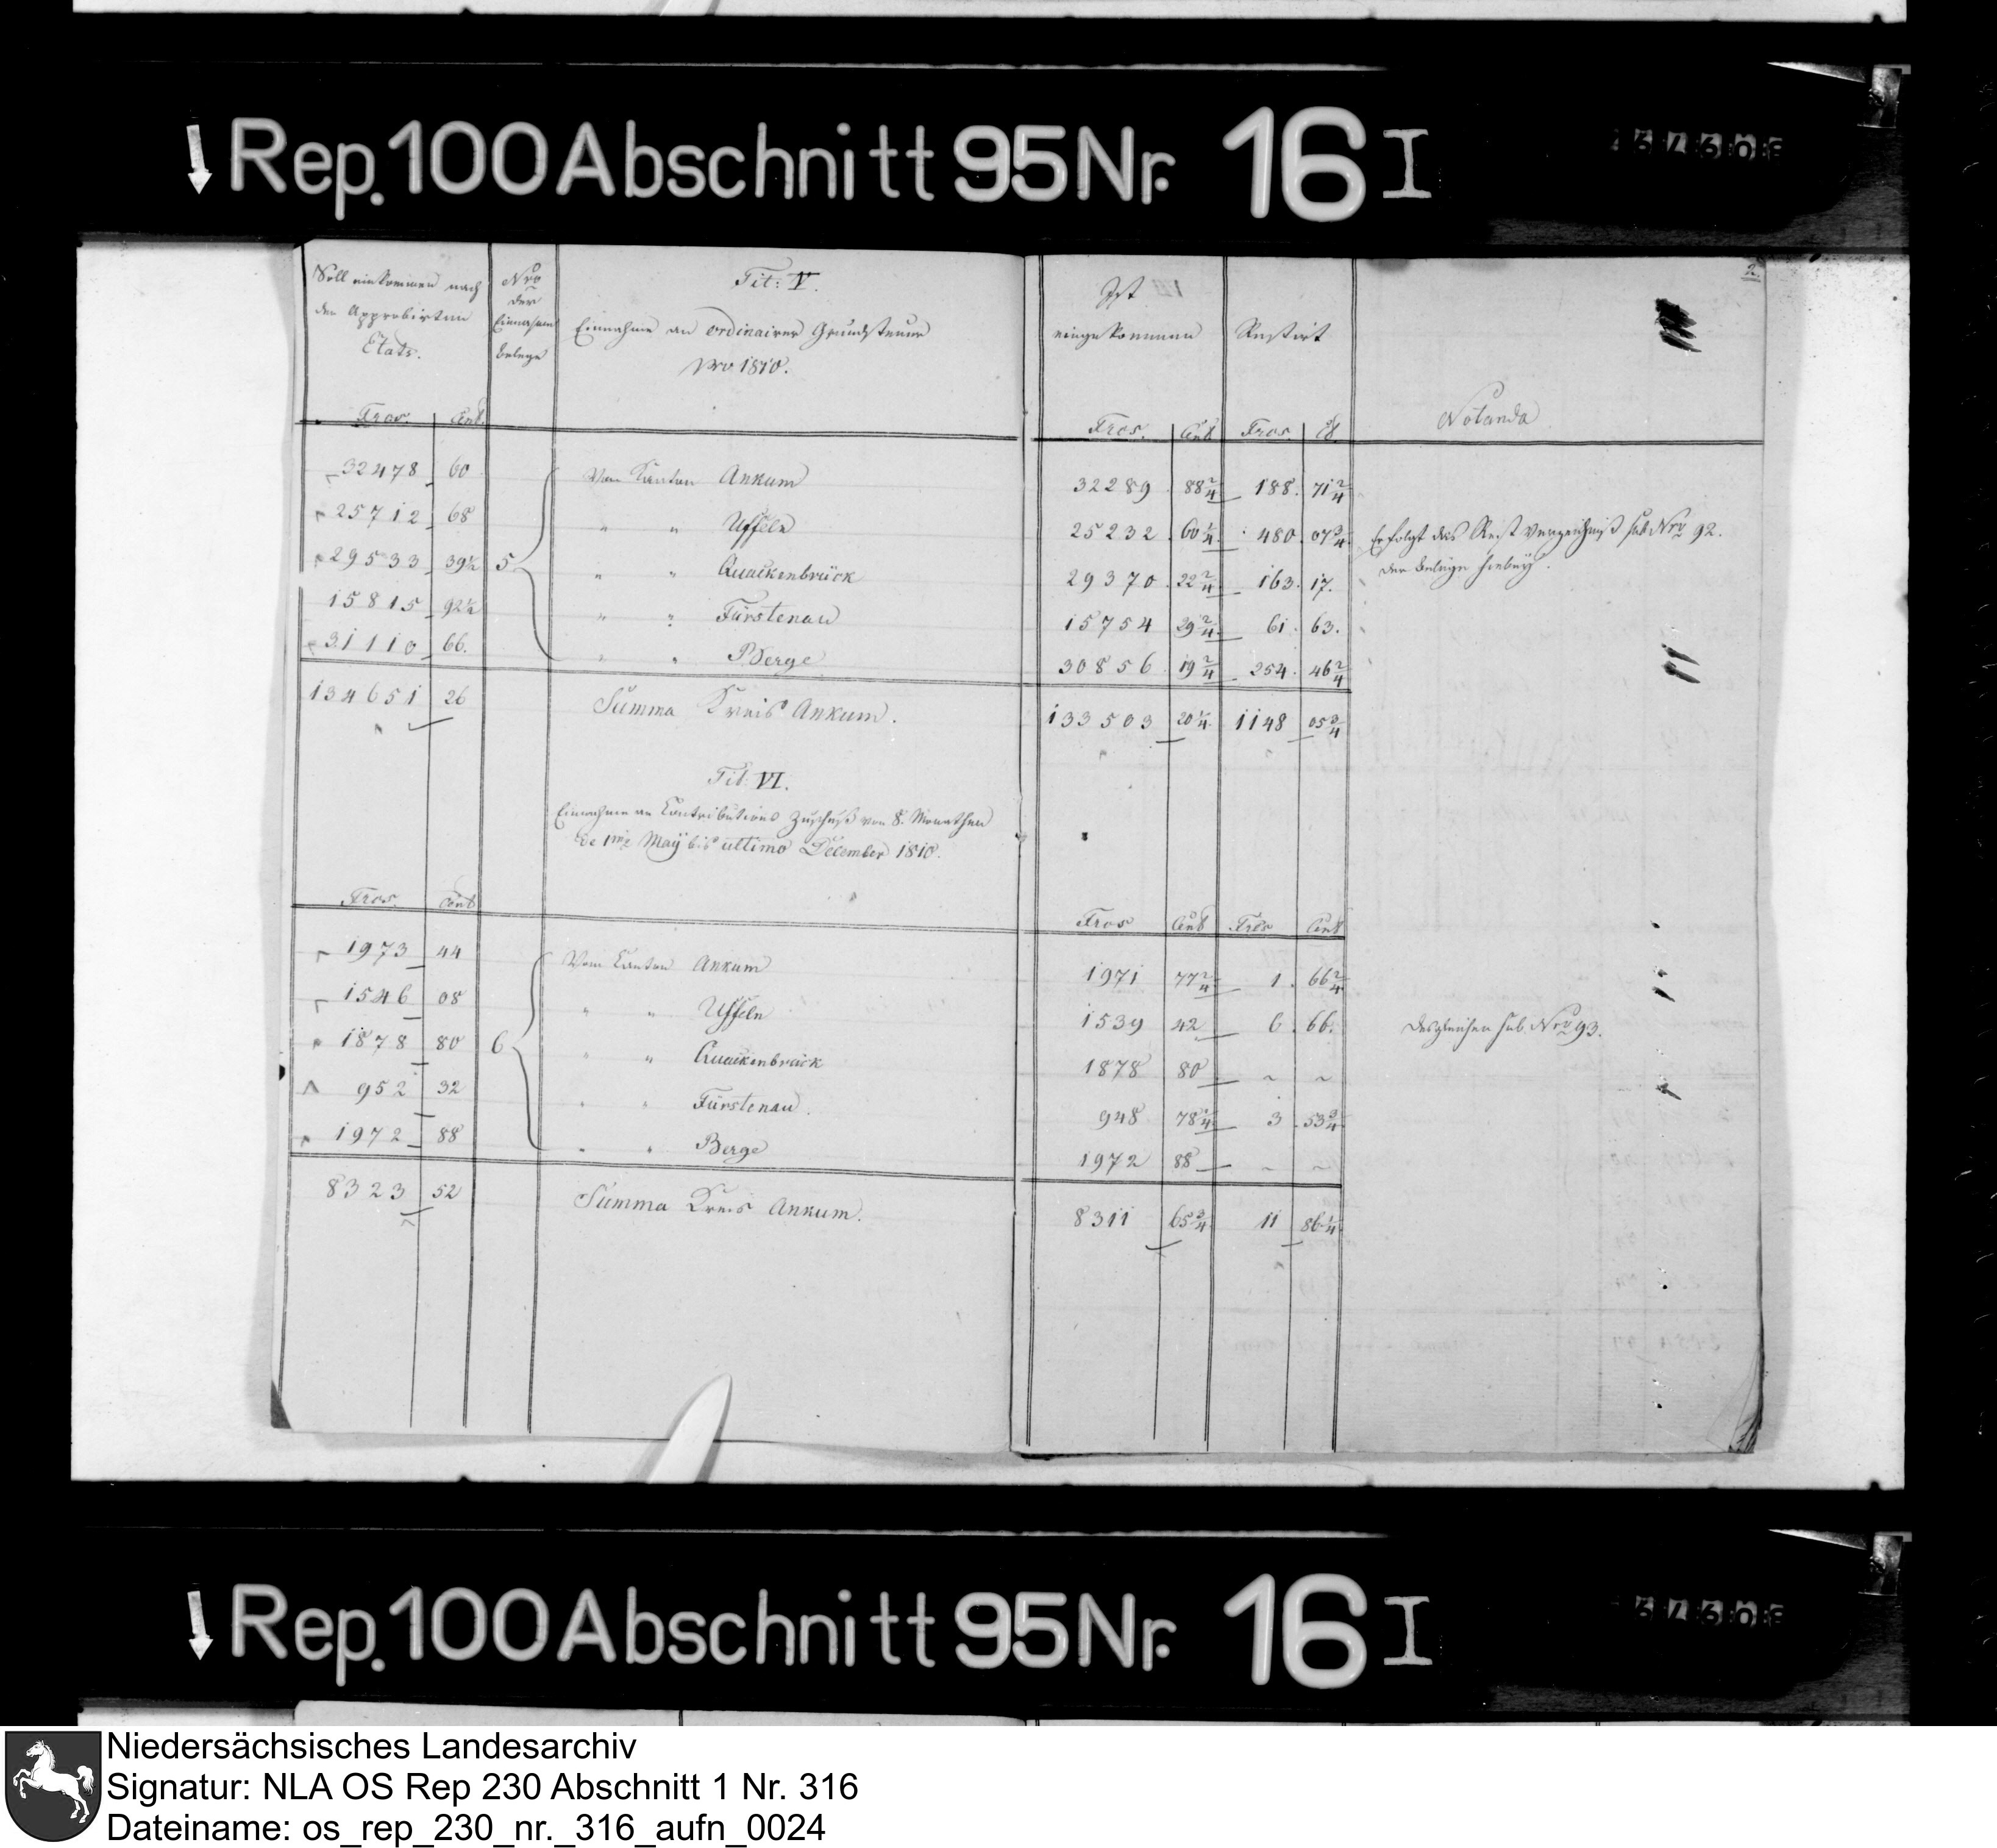 Rep. 100 Abschnitt 95 Nr. 16 I
2.
Soll einkommen nach
den Approbirten
Etats.
Nro
der
Einnahme
belege
Tit: V.
Einnahme an ordinairer Grundsteuer
pro 1810.
Ist
eingekommen
Restirt
Notanda
Frcs. Cent.
Frcs. Cent Frcs. Ct
32478 60 Vom Canton Ankum 32289 88 2/4 188. 71 2/4
25712 68 " " Uffeln 25232 60 1/4 480. 07 3/4 Erfolgt das Rest Verzeichniß sub Nro 92.
der Belege hiebey.
29533 39 1/2 5 " " Quackenbrück 29370 22 2/4 163. 17.
15815 92 1/2 " " Fürstenau 15754 29 2/4 61. 63.
31110 66. " " Berge 30856 19 2/4 254. 46 2/4
134651 26 Summa Kreis Ankum. 133503 20 1/4 1148 05 3/4
Tit: VI.
Einnahme an Contributions Zuschuß von 8. Monathen
de 1mo May bis ultimo December 1810.
Frcs. Cent
Frcs Cent Frcs Cent
1973 44 Vom Canton Ankum 1971 77 2/4 1. 66 2/4
1546 08 " " Uffeln 1539 42 6. 66. Desgleichen sub Nro 93.
1878 80 6 " " Quackenbrück 1878 80 ~ ~
952 32 " " Fürstenau. 948 78 1/4 3. 53 3/4
1972 88 " " Berge 1972 88 ~ ~
8323 52 Summa Kreis Ankum. 8311 65 3/4 11 86 1/4
Rep. 100 Abschnitt 95 Nr. 16 I
Niedersächsisches Landesarchiv
Signatur: NLA OS Rep 230 Abschnitt 1 Nr. 316
Dateiname: os_rep_230_nr._316_aufn_0024